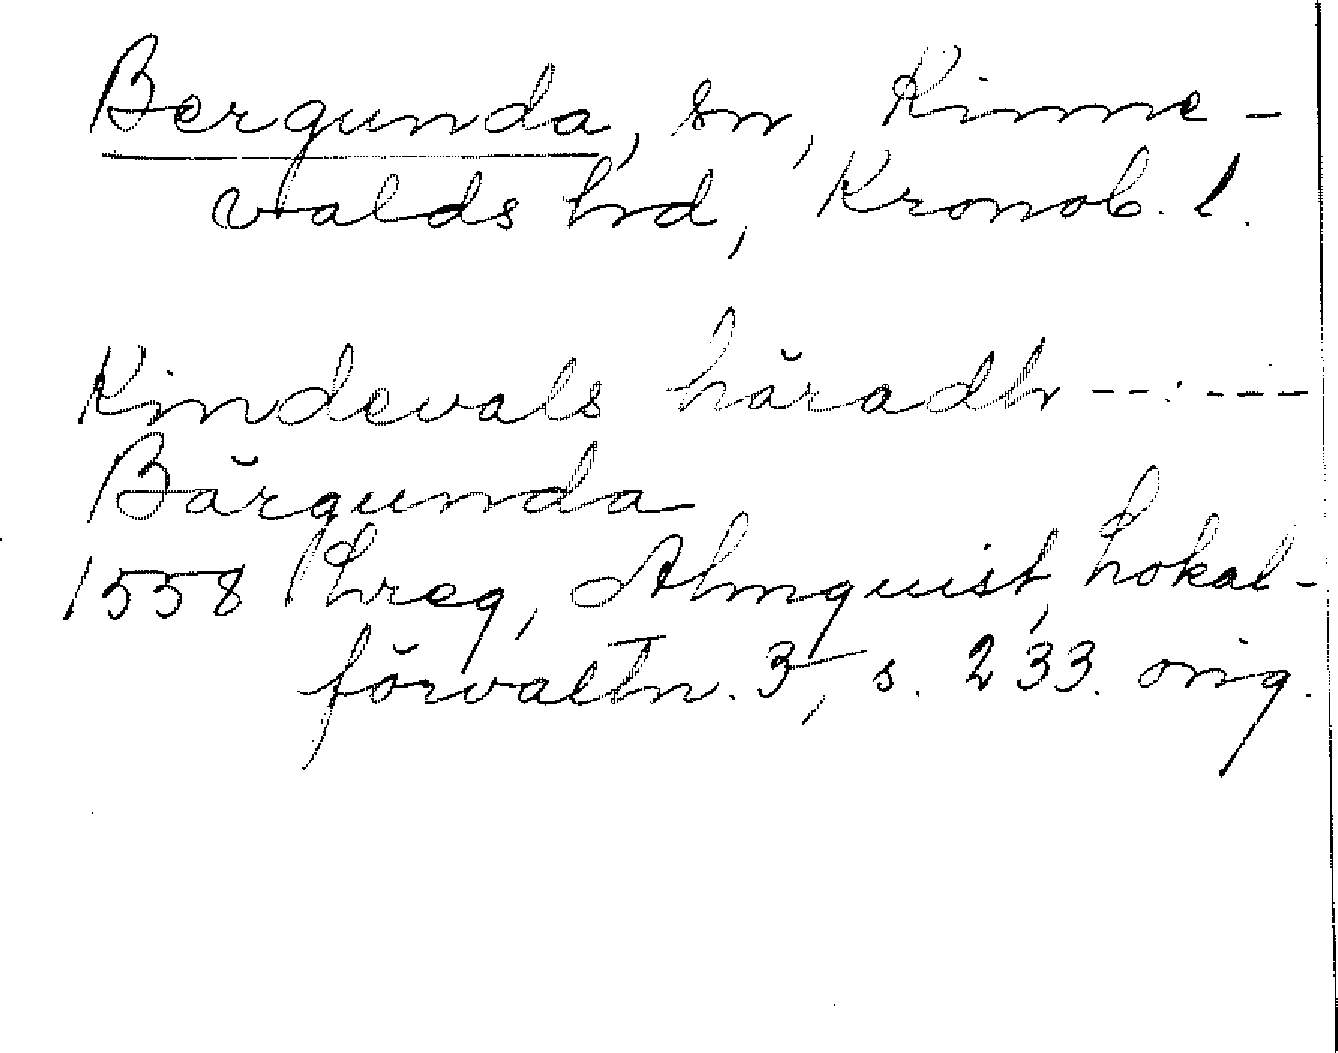 Bergunda, sn, Kinne-
valds hd, Kronob. l.
Kindevals häradh -----
Bärgunda
1558 hreg, Almquist, Lokal-
förvaltn. 3, s. 233. orig.